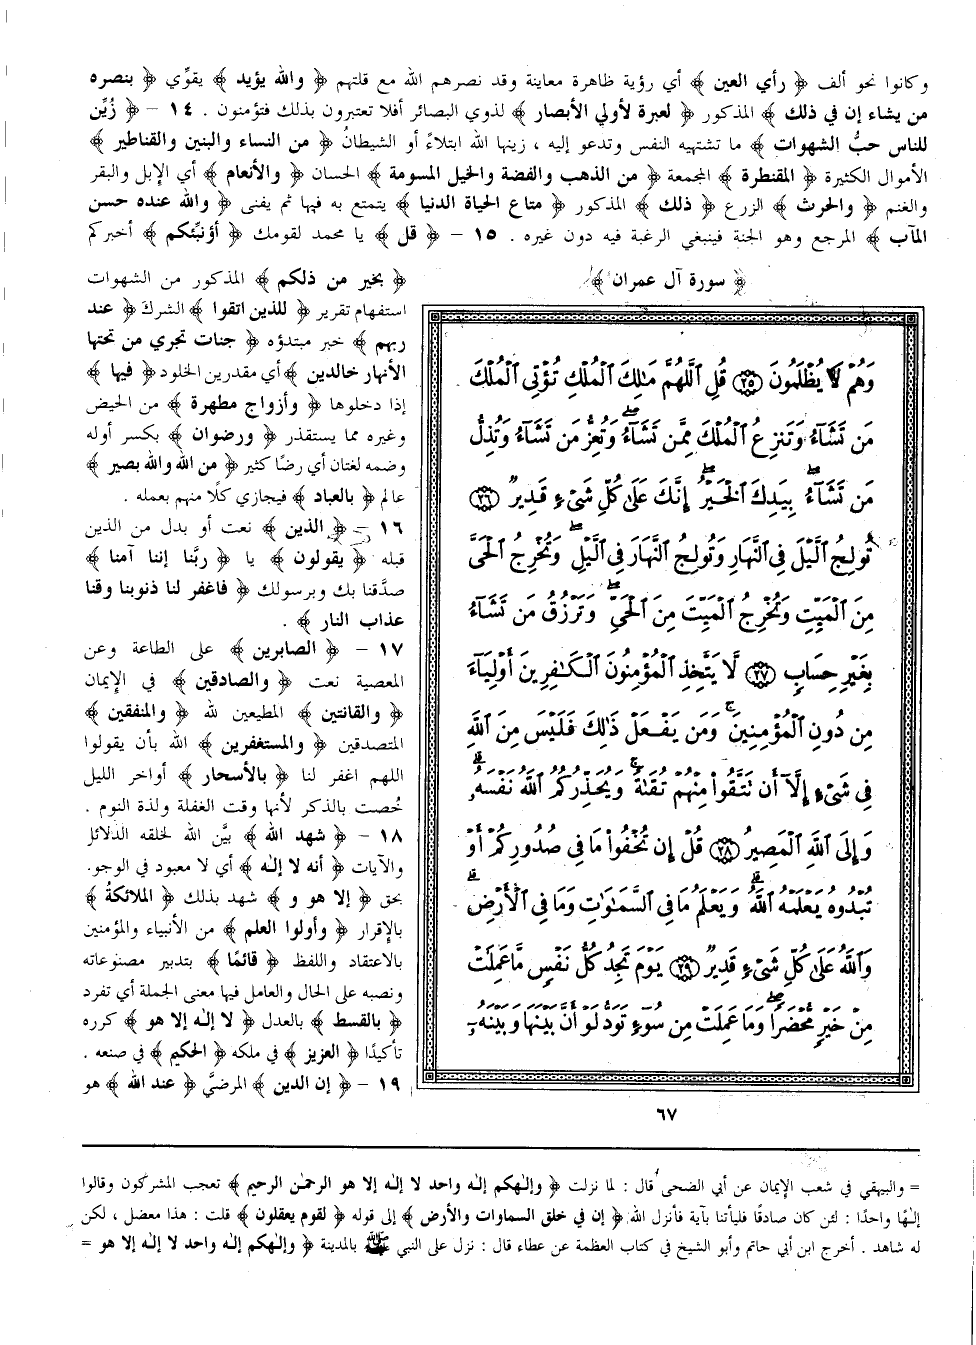 وكانوا نحو ألف ﴿ رأي العين ﴾ أي رؤية ظاهرة معاينة وقد نصرهم الله مع قلتهم ﴿ والله يؤيد ﴾ يقوِّي ﴿ بنصره
من يشاء إن في ذلك ﴾ المذكور ﴿ لعبرة لأولي الأبصار ﴾ لذوي البصائر أفلا تعتبرون بذلك فتؤمنون . ١٤ – ﴿ زُيِّن
للناس حبُّ الشهوات ﴾ ما تشتهيه النفس وتدعو إليه ، زينها الله ابتلاءً أو الشيطانُ ﴿ من النساء والبنين والقناطير ﴾
الأموال الكثيرة ﴿ المقنطرة ﴾ المجمعة ﴿ من الذهب والفضة والخيل المسومة ﴾ الحسان ﴿ والأنعام ﴾ أي الإبل والبقر
والغنم ﴿ والحرث ﴾ الزرع ﴿ ذلك ﴾ المذكور ﴿ متاع الحياة الدنيا ﴾ يتمتع به فيها ثم يفنى ﴿ والله عنده حسن
المآب ﴾ المرجع وهو الجنة فينبغي الرغبة فيه دون غيره . ١٥ – ﴿ قل ﴾ يا محمد لقومك ﴿ أؤنبِّئكم ﴾ أخبركم
﴿ سورة آل عمران ﴾
وَهُمْ لَا يُظْلَمُونَ ٢٥ قُلِ اللَّهُمَّ مَالِكَ الْمُلْكِ تُؤْتِي الْمُلْكَ
مَن تَشَاءُ وَتَنزِعُ الْمُلْكَ مِمَّن تَشَاءُ وَتُعِزُّ مَن تَشَاءُ وَتُذِلُّ
مَن تَشَاءُ بِيَدِكَ الْخَيْرُ إِنَّكَ عَلَىٰ كُلِّ شَيْءٍ قَدِيرٌ ٢٦
تُولِجُ اللَّيْلَ فِي النَّهَارِ وَتُولِجُ النَّهَارَ فِي اللَّيْلِ وَتُخْرِجُ الْحَيَّ
مِنَ الْمَيِّتِ وَتُخْرِجُ الْمَيِّتَ مِنَ الْحَيِّ وَتَرْزُقُ مَن تَشَاءُ
بِغَيْرِ حِسَابٍ ٢٧ لَّا يَتَّخِذِ الْمُؤْمِنُونَ الْكَافِرِينَ أَوْلِيَاءَ
مِن دُونِ الْمُؤْمِنِينَ وَمَن يَفْعَلْ ذَٰلِكَ فَلَيْسَ مِنَ اللَّهِ
فِي شَيْءٍ إِلَّا أَن تَتَّقُوا مِنْهُمْ تُقَاةً وَيُحَذِّرُكُمُ اللَّهُ نَفْسَهُ
وَإِلَى اللَّهِ الْمَصِيرُ ٢٨ قُلْ إِن تُخْفُوا مَا فِي صُدُورِكُمْ أَوْ
تُبْدُوهُ يَعْلَمْهُ اللَّهُ وَيَعْلَمُ مَا فِي السَّمَاوَاتِ وَمَا فِي الْأَرْضِ
وَاللَّهُ عَلَىٰ كُلِّ شَيْءٍ قَدِيرٌ ٢٩ يَوْمَ تَجِدُ كُلُّ نَفْسٍ مَّا عَمِلَتْ
مِنْ خَيْرٍ مُّحْضَرًا وَمَا عَمِلَتْ مِن سُوءٍ تَوَدُّ لَوْ أَنَّ بَيْنَهَا وَبَيْنَهُ
٦٧
﴿ بخير من ذلكم ﴾ المذكور من الشهوات
استفهام تقرير ﴿ للذين اتقوا ﴾ الشرك ﴿ عند
ربهم ﴾ خبر مبتدؤه ﴿ جنات تجري من تحتها
الأنهار خالدين ﴾ أي مقدرين الخلود ﴿ فيها ﴾
إذا دخلوها ﴿ وأزواج مطهرة ﴾ من الحيض
وغيره مما يستقذر ﴿ ورضوان ﴾ بكسر أوله
وضمه لغتان أي رضًا كثير ﴿ من الله والله بصير ﴾
عالم ﴿ بالعباد ﴾ فيجازي كلًا منهم بعمله .
١٦ – ﴿ الذين ﴾ نعت أو بدل من الذين
قبله ﴿ يقولون ﴾ يا ﴿ ربَّنا إننا آمنا ﴾
صدَّقنا بك وبرسولك ﴿ فاغفر لنا ذنوبنا وقنا
عذاب النار ﴾ .
١٧ – ﴿ الصابرين ﴾ على الطاعة وعن
المعصية نعت ﴿ والصادقين ﴾ في الإيمان
﴿ والقانتين ﴾ المطيعين لله ﴿ والمنفقين ﴾
المتصدقين ﴿ والمستغفرين ﴾ الله بأن يقولوا
اللهم اغفر لنا ﴿ بالأسحار ﴾ أواخر الليل
خُصت بالذكر لأنها وقت الغفلة ولذة النوم .
١٨ – ﴿ شهد الله ﴾ بيَّن الله لخلقه الدلائل
والآيات ﴿ أنه لا إلٰه ﴾ أي لا معبود في الوجو.
بحق ﴿ إلا هو و ﴾ شهد بذلك ﴿ الملائكةُ ﴾
بالإقرار ﴿ وأولوا العلم ﴾ من الأنبياء والمؤمنين
بالاعتقاد واللفظ ﴿ قائمًا ﴾ بتدبير مصنوعاته
ونصبه على الحال والعامل فيها معنى الجملة أي تفرد
﴿ بالقسط ﴾ بالعدل ﴿ لا إلٰه إلا هو ﴾ كرره
تأكيدًا ﴿ العزيز ﴾ في ملكه ﴿ الحكيم ﴾ في صنعه .
١٩ – ﴿ إن الدين ﴾ المرضيَّ ﴿ عند الله ﴾ هو
= والبيهقي في شعب الإيمان عن أبي الضحى قال : لما نزلت ﴿ وإلٰهكم إلٰه واحد لا إلٰه إلا هو الرحمٰن الرحيم ﴾ تعجب المشركون وقالوا
إلٰهًا واحدًا : لئن كان صادقًا فليأتنا بآية فأنزل الله ﴿ إن في خلق السماوات والأرض ﴾ إلى قوله ﴿ لقوم يعقلون ﴾ قلت : هذا معضل ، لكن
له شاهد . أخرج ابن أبي حاتم وأبو الشيخ في كتاب العظمة عن عطاء قال : نزل على النبي ﷺ بالمدينة ﴿ وإلٰهكم إلٰه واحد لا إلٰه إلا هو =